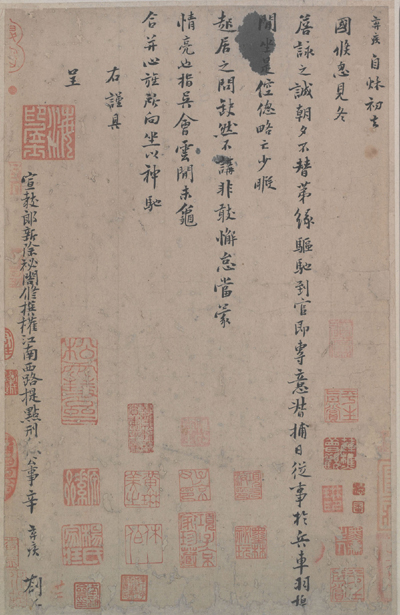 棄疾自秋初去
國倏忽見冬
詹詠之誠朝夕不替第緣驅馳到官即專意督捕日從事於兵車羽檄
間坐是倥傯略亡少暇
起居之問缺然不講非敢懈怠當蒙
情亮也指吳會雲間未龜
合并心旌所向坐以神馳
右謹具
呈
宣教郎新除秘閣修撰權江南西路提點刑獄公事辛棄疾劄